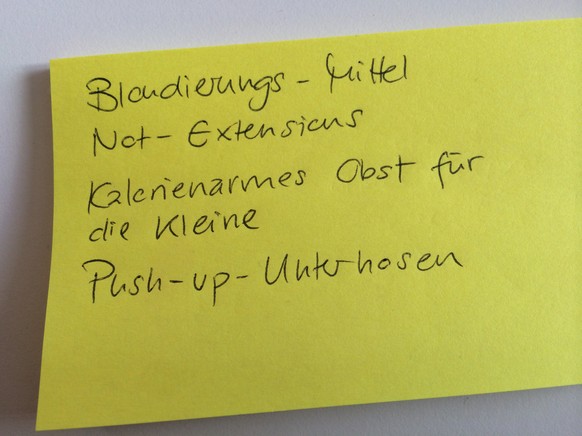 Blondierungs-Mittel
Not-Extensions
Kalorienarmes Obst für
die Kleine
Push-up-Unterhosen